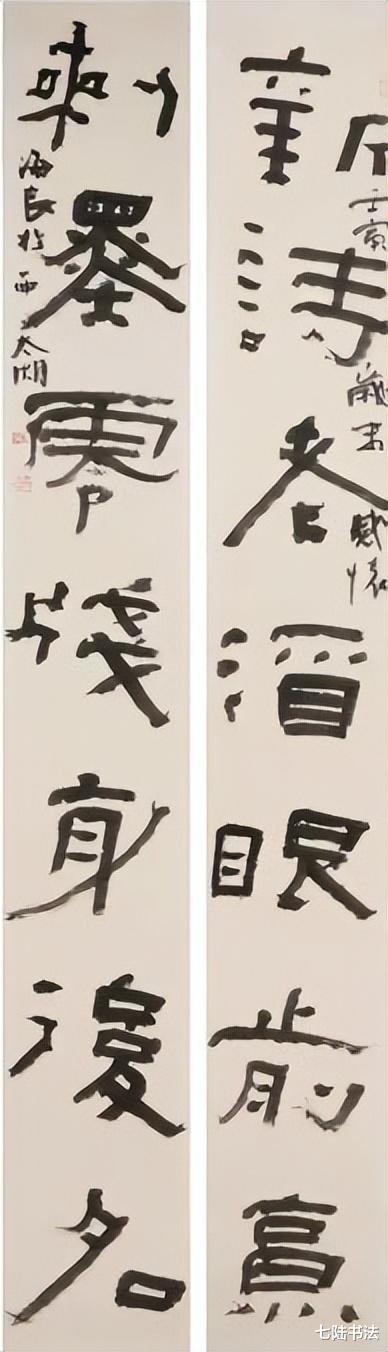 新詩老酒眼前景
壬寅歲末感懷
剩墨零牋身後名
海良於西太湖
七陆书法